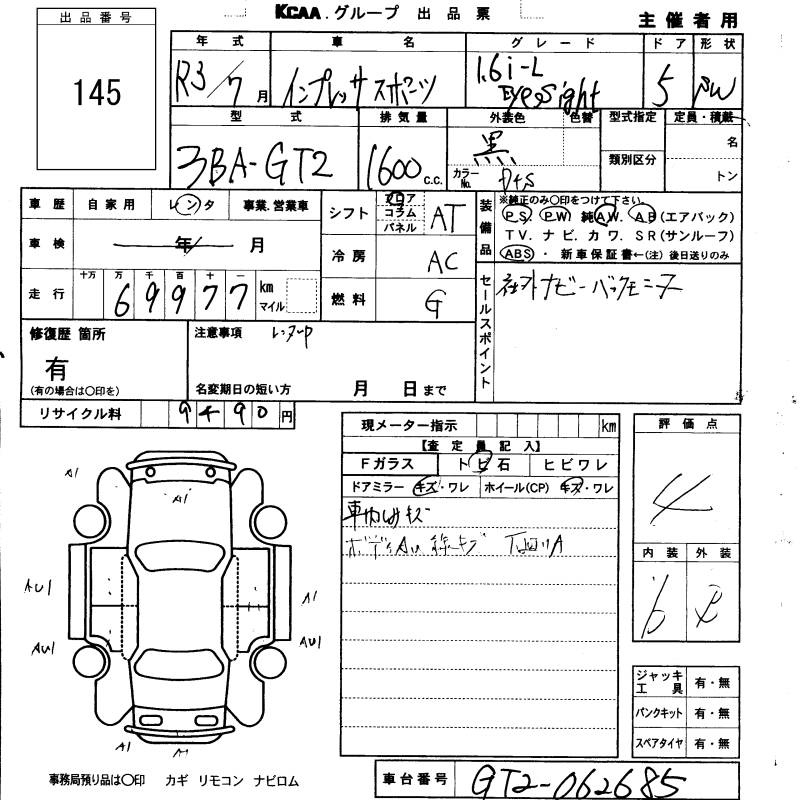 KCAA.グループ 出品票
主催者用
出品番号
145
年式 車名 グレード ドア 形状
R3/7月 インプレッサスポーツ 1.6i-L EyeSight 5
型式 排気量 外装色 色替 型式指定 定員・積載
3BA-GT2 1600 c.c. 黒 カラーNo. 類別区分 名 トン
車歴 自家用 レンタ 事業.営業車
車検 年 月
走行 十万 万 千 百 十 一
69977 km マイル
シフト フロア コラム パネル AT
冷房 AC
燃料 G
装備品 ※純正のみ〇印をつけて下さい。
PS. PW. 純AW. AB(エアバック)
TV. ナビ. カワ. SR(サンルーフ)
ABS ・ 新車保証書←(注) 後日送りのみ
セールスポイント
社外ナビーバックモニター
修復歴 箇所
有
(有の場合は〇印を)
注意事項 レンタUP
名変期日の短い方 月 日まで
リサイクル料 9490円
現メーター指示 km
【査定員記入】
Fガラス トビ石 ヒビワレ
ドアミラー キズ・ワレ ホイール(CP) キズ・ワレ
車内しみキズ
ボディAU 線キズ 下回りA
評価点
4
内装 外装
A1
A1
AU1
A1
AU1
AU1
A1
ジャッキ工具 有・無
パンクキット 有・無
スペアタイヤ 有・無
事務局預り品は〇印 カギ リモコン ナビロム
車台番号 GT2-062685